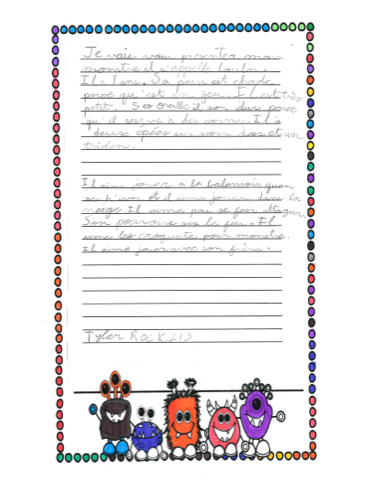 Je vais vous presenter mon
monstre il s'appelle Loulou.
Il a 1 ans. Sa peau est chade
parce qu'est en feu. Il est très
petit. Ses oreille il son dure parce
qu'il serve à des corne. Il a
deux épées sur son dos et un
triden.
Il aime jouer a la balancois quan
il aime jouer dans la
neige. Il aime pas se fair attaquer.
Son pouvoir ses le feu. Il
aime les croquete pour monstre.
Il aime jouer avec son frère.
Tyler Rock 213